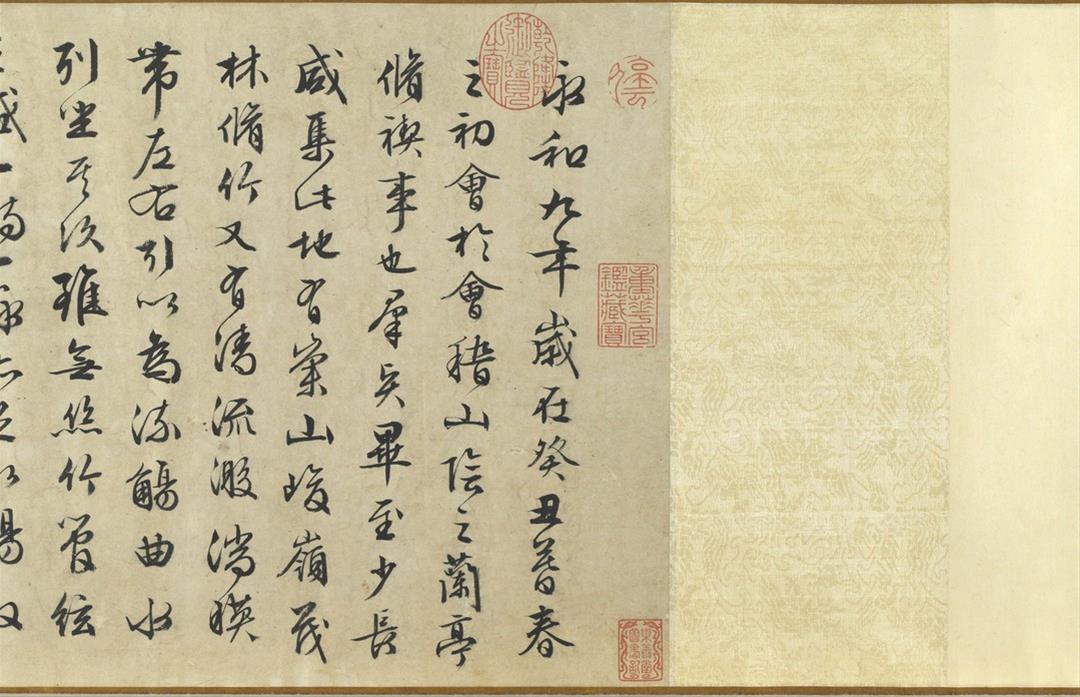 永和九年歲在癸丑暮春
之初會於會稽山陰之蘭亭
脩禊事也羣賢畢至少長
咸集此地有崇山峻嶺茂
林脩竹又有清流激湍暎
帶左右引以為流觴曲水
列坐其次雖無絲竹管絃
盛一觴一詠亦足以暢
乾隆御覽之寶
重華宮鑑藏寶